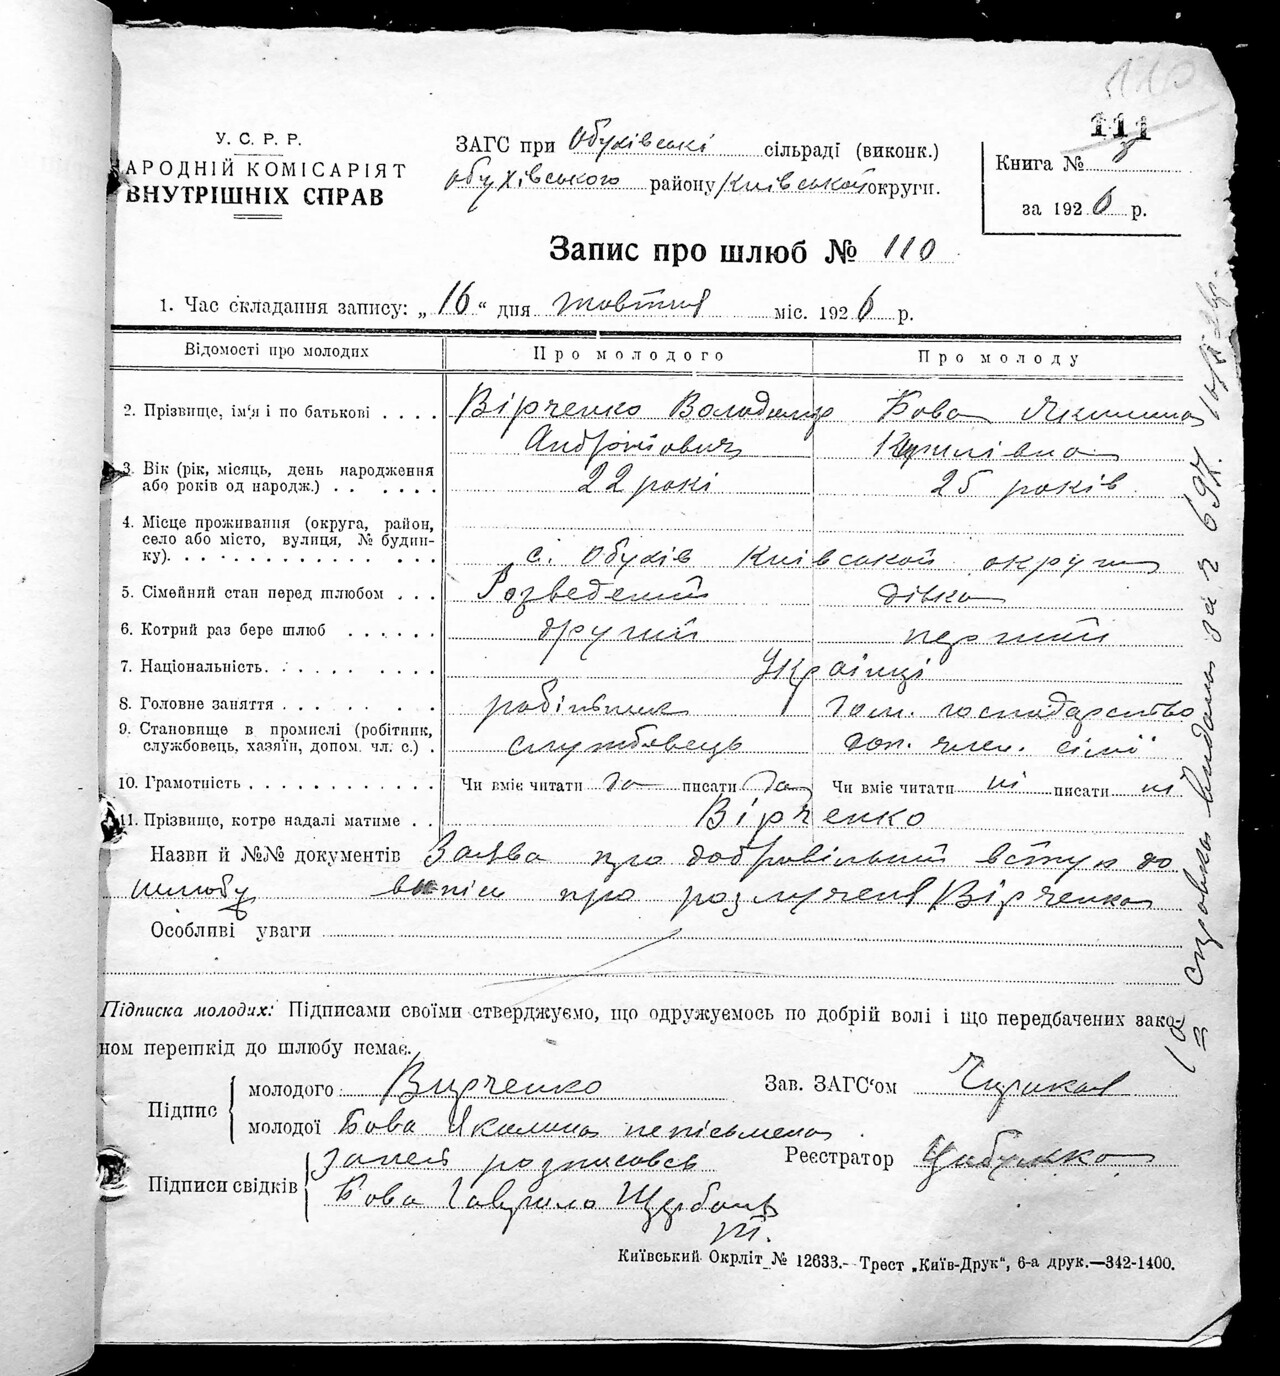 110
111
У. С. Р. Р.
НАРОДНІЙ КОМІСАРІЯТ
ВНУТРІШНІХ СПРАВ
ЗАГС при Обухівські сільраді (виконк.)
Обухівського району Київськой округи.
Книга №
за 1926 р.
Запис про шлюб № 110
1. Час складання запису: „16“ дня жовтня міс. 1926 р.
Відомості про молодих
Про молодого
Про молоду
2. Прізвище, ім'я і по батькові . . . .
Вірченко Володимир
Андрійович
Бова Якилина
Кирилівна
3. Вік (рік, місяць, день народження
або років од народж.) . . . . . .
22 рокі
25 років
4. Місце проживання (округа, район,
село або місто, вулиця, № будин-
ку). . . . . . . . . . . . . . .
с. Обухів Київськой округи
5. Сімейний стан перед шлюбом . . .
Розведений
дівка
6. Котрий раз бере шлюб . . . . . .
другий
перший
7. Національність. . . . . . . . .
Українці
8. Головне заняття . . . . . . . .
робітник
дом. господарство
9. Становище в промислі (робітник,
службовець, хазяїн, допом. чл. с.) .
службовець
доп. член. сімї
10. Грамотність . . . . . . . . . . . .
Чи вміє читати да писати да
Чи вміє читати ні писати ні
11. Прізвище, котре надалі матиме . .
Вірченко
Назви й №№ документів Заява про добровільний вступ до
шлюбу випіси про розлученя Вірченко
Особливі уваги
Підписка молодих: Підписами своїми стверджуємо, що одружуємось по добрій волі і що передбачених зако-
ном перешкід до шлюбу немає.
Підпис
молодого Вирченко
молодої Бова Якилина неписьмена
Зав. ЗАГС'ом
Реєстратор
Підписи свідків
за неї розписовсь
Бова Гаврило
Київський Окрліт № 12633.- Трест „Київ-Друк“, 6-а друк.—342-1400.
справка видана за № 697